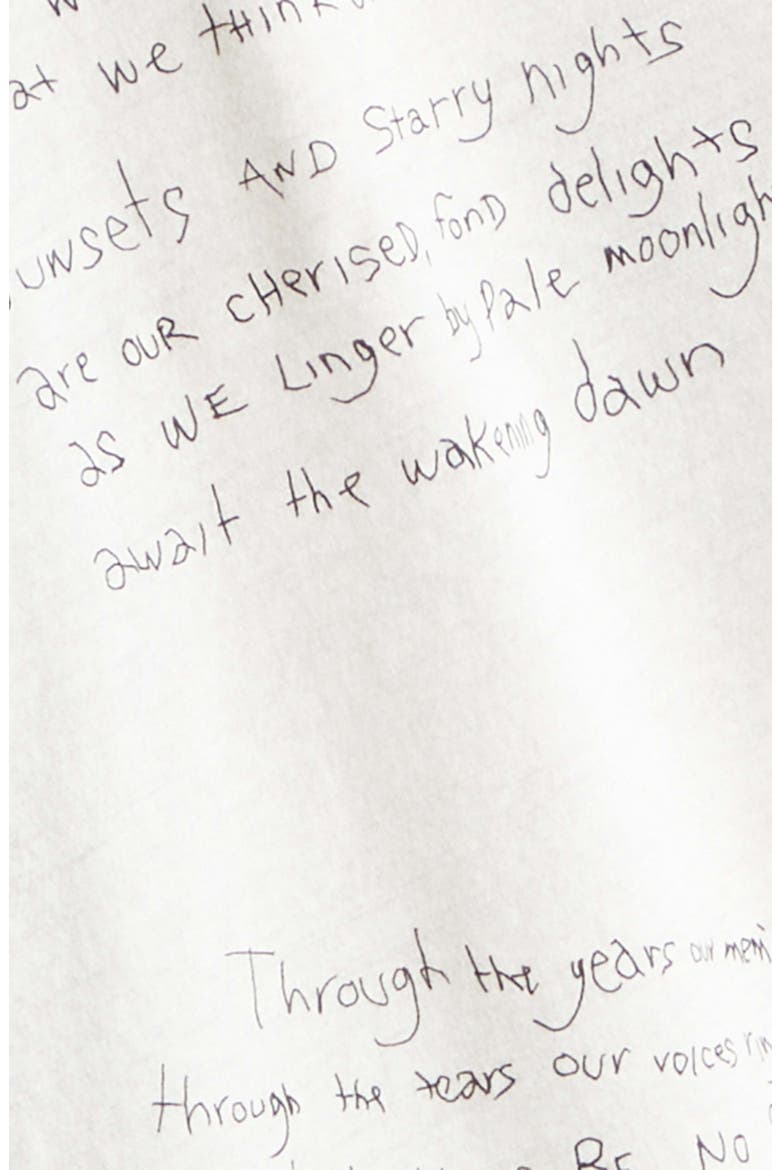 at we think
unsets AND Starry nights
are OUR cHeriseD, fonD delights
as WE Linger by Pale moonligh
await the wakening dawn
Through the years our mem
through the tears our voices rin
Be NO